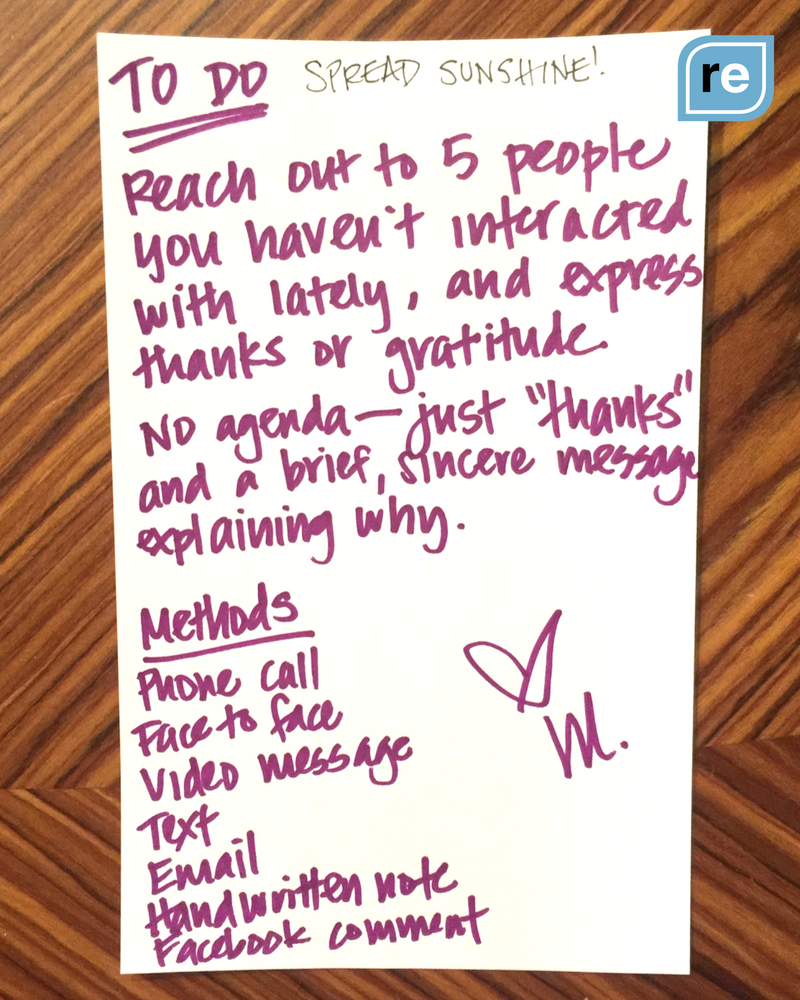 TO DO SPREAD SUNSHINE!
re
Reach out to 5 people
you haven't interacted
with lately, and express
thanks or gratitude.
No agenda — just "thanks"
and a brief, sincere message
explaining why.
Methods
Phone call
Face to face
Video message
Text
Email
Handwritten note
Facebook comment
M.